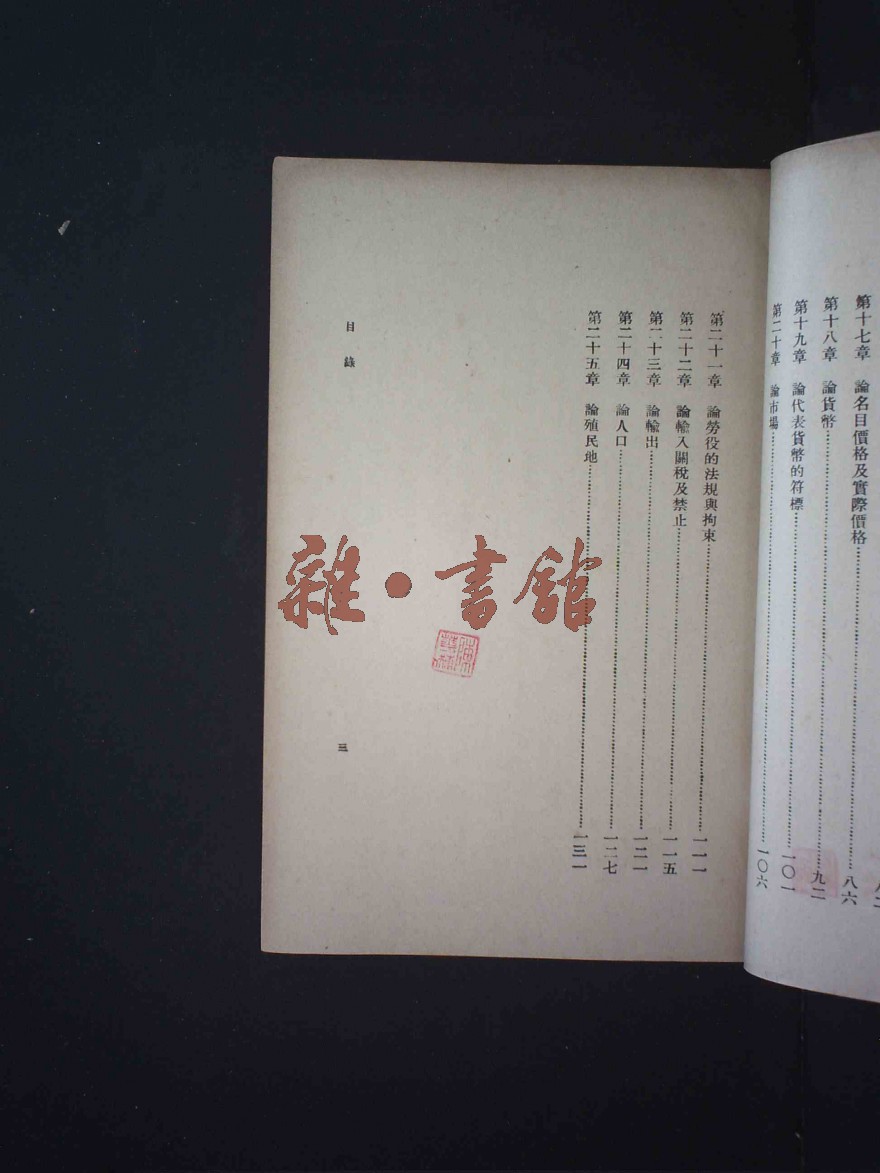 第十七章　論名目價格及實際價格……八六
第十八章　論貨幣……九二
第十九章　論代表貨幣的符標……一〇一
第二十章　論市場……一〇六
第二十一章　論勞役的法規與拘束……一一一
第二十二章　論輸入關稅及禁止……一一五
第二十三章　論輸出……一二一
第二十四章　論人口……一二七
第二十五章　論殖民地……一三一
目錄
三
雜·書館